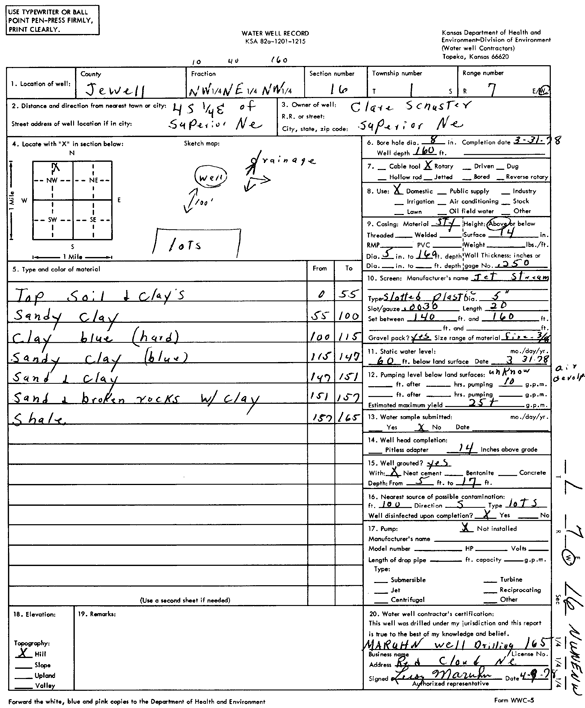 USE TYPEWRITER OR BALL
POINT PEN-PRESS FIRMLY,
PRINT CLEARLY.
WATER WELL RECORD
KSA 82a-1201-1215
Kansas Department of Health and
Environment-Division of Environment
(Water well Contractors)
Topeka, Kansas 66620
10 40 160
1. Location of well:
County
Jewell
Fraction
NW 1/4 NE 1/4 NW 1/4
Section number
16
Township number
T 1 S
Range number
R 7 E/W
2. Distance and direction from nearest town or city: 4 S 1/4 E of
Street address of well location if in city: Superior Ne
3. Owner of well: Clare Schuster
R.R. or street:
City, state, zip code: Superior Ne
4. Locate with "X" in section below:
N
X
NW NE
W E
SW SE
S
1 Mile
1 Mile
Sketch map:
well
drainage
100'
lots
6. Bore hole dia. 8 in. Completion date 3-31-78
Well depth 160 ft.
7. Cable tool X Rotary Driven Dug
Hollow rod Jetted Bored Reverse rotary
8. Use: X Domestic Public supply Industry
Irrigation Air conditioning Stock
Lawn Oil field water Other
9. Casing: Material Sty Height: Above or below
Threaded Welded Surface 14 in.
RMP PVC Weight lbs./ft.
Dia. 5 in. to 160 ft. depth Wall Thickness: inches or
Dia. in. to ft. depth gage No. .250
5. Type and color of material
From To
Top Soil & Clay's 0 55
Sandy Clay 55 100
Clay blue (hard) 100 115
Sandy Clay (blue) 115 147
Sand & clay 147 151
Sand & broken rocks w/ clay 151 157
Shale 157 165
(Use a second sheet if needed)
10. Screen: Manufacturer's name Jet Stream
Type Slotted plastic Dia. 5"
Slot/gauze .0030 Length 20
Set between 140 ft. and 160 ft.
ft. and ft.
Gravel pack? yes Size range of material fine-3/8
11. Static water level: mo./day/yr.
60 ft. below land surface Date 3 31 78
12. Pumping level below land surfaces: unknow
ft. after hrs. pumping 10 g.p.m.
ft. after hrs. pumping g.p.m.
Estimated maximum yield 25+ g.p.m.
air
13. Water sample submitted: mo./day/yr.
Yes X No Date
14. Well head completion:
Pitless adapter 14 Inches above grade
15. Well grouted? yes
With: X Neat cement Bentonite Concrete
Depth: From 5 ft. to 17 ft.
16. Nearest source of possible contamination:
ft. 100 Direction S Type lots
Well disinfected upon completion? X Yes No
17. Pump: X Not installed
Manufacturer's name
Model number HP Volts
Length of drop pipe ft. capacity g.p.m.
Type:
Submersible Turbine
Jet Reciprocating
Centrifugal Other
18. Elevation:
Topography:
X Hill
Slope
Upland
Valley
19. Remarks:
20. Water well contractor's certification:
This well was drilled under my jurisdiction and this report
is true to the best of my knowledge and belief.
MARUHN well Drilling 165
Business name License No.
Address Red Cloud Ne
Signed Leroy Maruhn Date 4-9-78
Authorized representative
T 1 R 7 W Sec 16 NW NE NW
1/4 1/4 1/4
Forward the white, blue and pink copies to the Department of Health and Environment
Form WWC-5